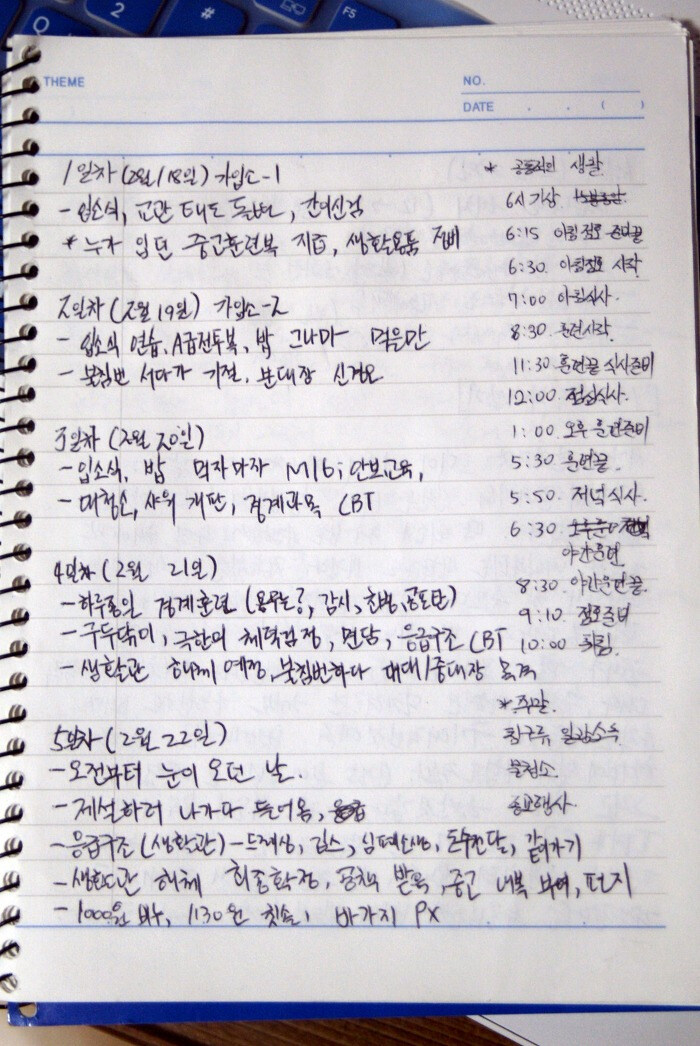 THEME
NO.
DATE . . ( )
1일차 (2월 18일) 가입소-1
- 입소식, 교관 태도 돌변, 간이신검
* 누가 입던 중고훈련복 지급, 생활용품 준비
2일차 (2월 19일) 가입소-2
- 입소식 연습, A급전투복, 밥 그나마 먹을만
- 불침번 서다가 기절, 분대장 신경요
3일차 (2월 20일)
- 입소식, 밥 먹자마자 M16, 안보교육,
- 대청소, 샤워 개판, 경계과목 CBT
4일차 (2월 21일)
- 하루종일 경계훈련 (용무도공, 감시, 초병, 공포탄)
- 구두닦이, 극한의 체력검정, 면담, 응급구조 CBT
- 생활관 해체 예정, 불침번하다 대대/중대장 목격
5일차 (2월 22일)
- 오전부터 눈이 오던 날
- 제설하러 나가다 들어옴,
- 응급구조 (생활관) - 드레싱, 깁스, 심폐소생, 환자전달, 갈아가기
- 생활관 해체 최종확정, 공책 발목, 중고 내복 부여, 편지
- 1000원 비누, 1130원 칫솔, 바가지 PX
* 공통적인 생활
6시 기상
6:15 아침점호 준비끝
6:30 아침점호 시작
7:00 아침식사
8:30 훈련시작
11:30 훈련끝 식사준비
12:00 점심식사
1:00 오후 훈련준비
5:30 훈련끝
5:50 저녁식사
6:30
야간훈련
8:30 야간훈련끝
9:10 점호준비
10:00 취침
* 주말
침구류 일광소독
물청소
종교행사